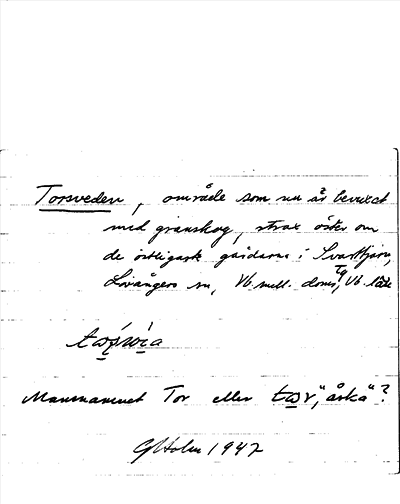 Torsveden, område som nu är bevuxet
med granskog, strax öster om
de östligaste gårdarna i Svarttjärn,
Lövångers sn, Vb. mell. doms. Tg, Vb. län
Mansnamnet Tor eller "åska"?
G Holm 1947